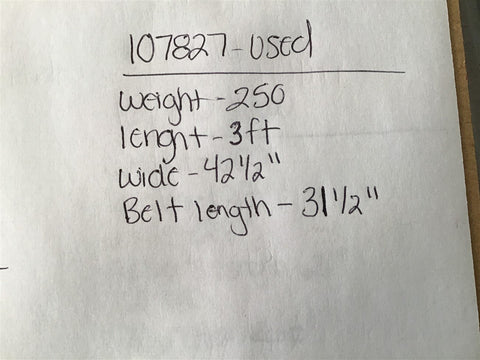 107827-Used
weight-250
lenght-3ft
wide-42 1/2"
Belt length-31 1/2"